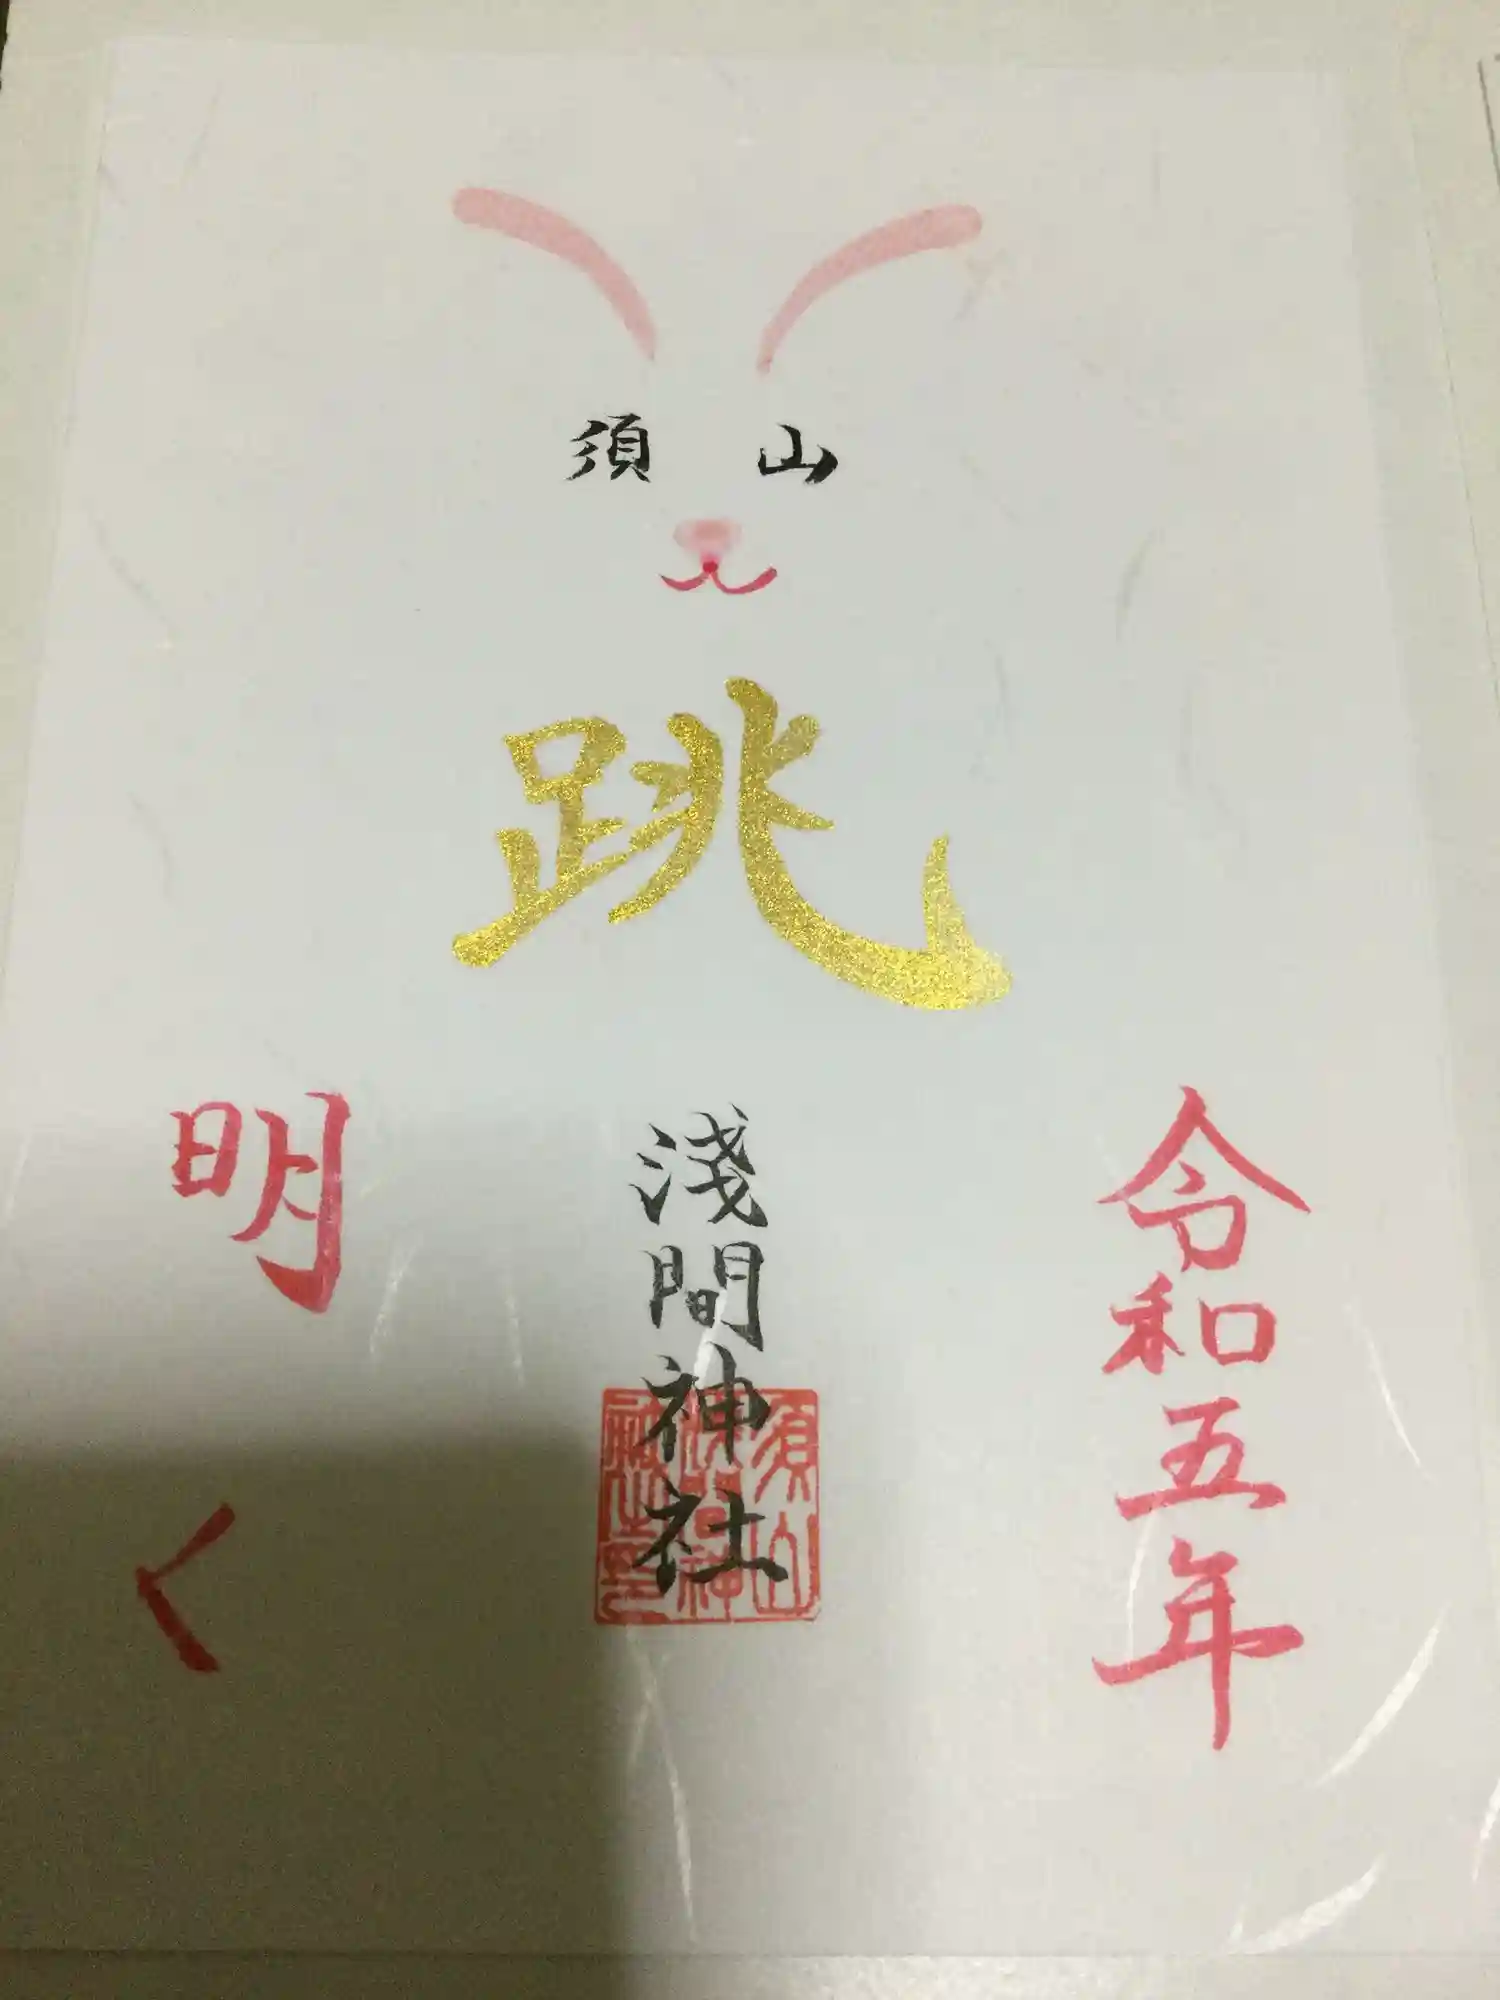 須 山
跳
令和五年
淺間神社
明く
須山
浅間神
社之印